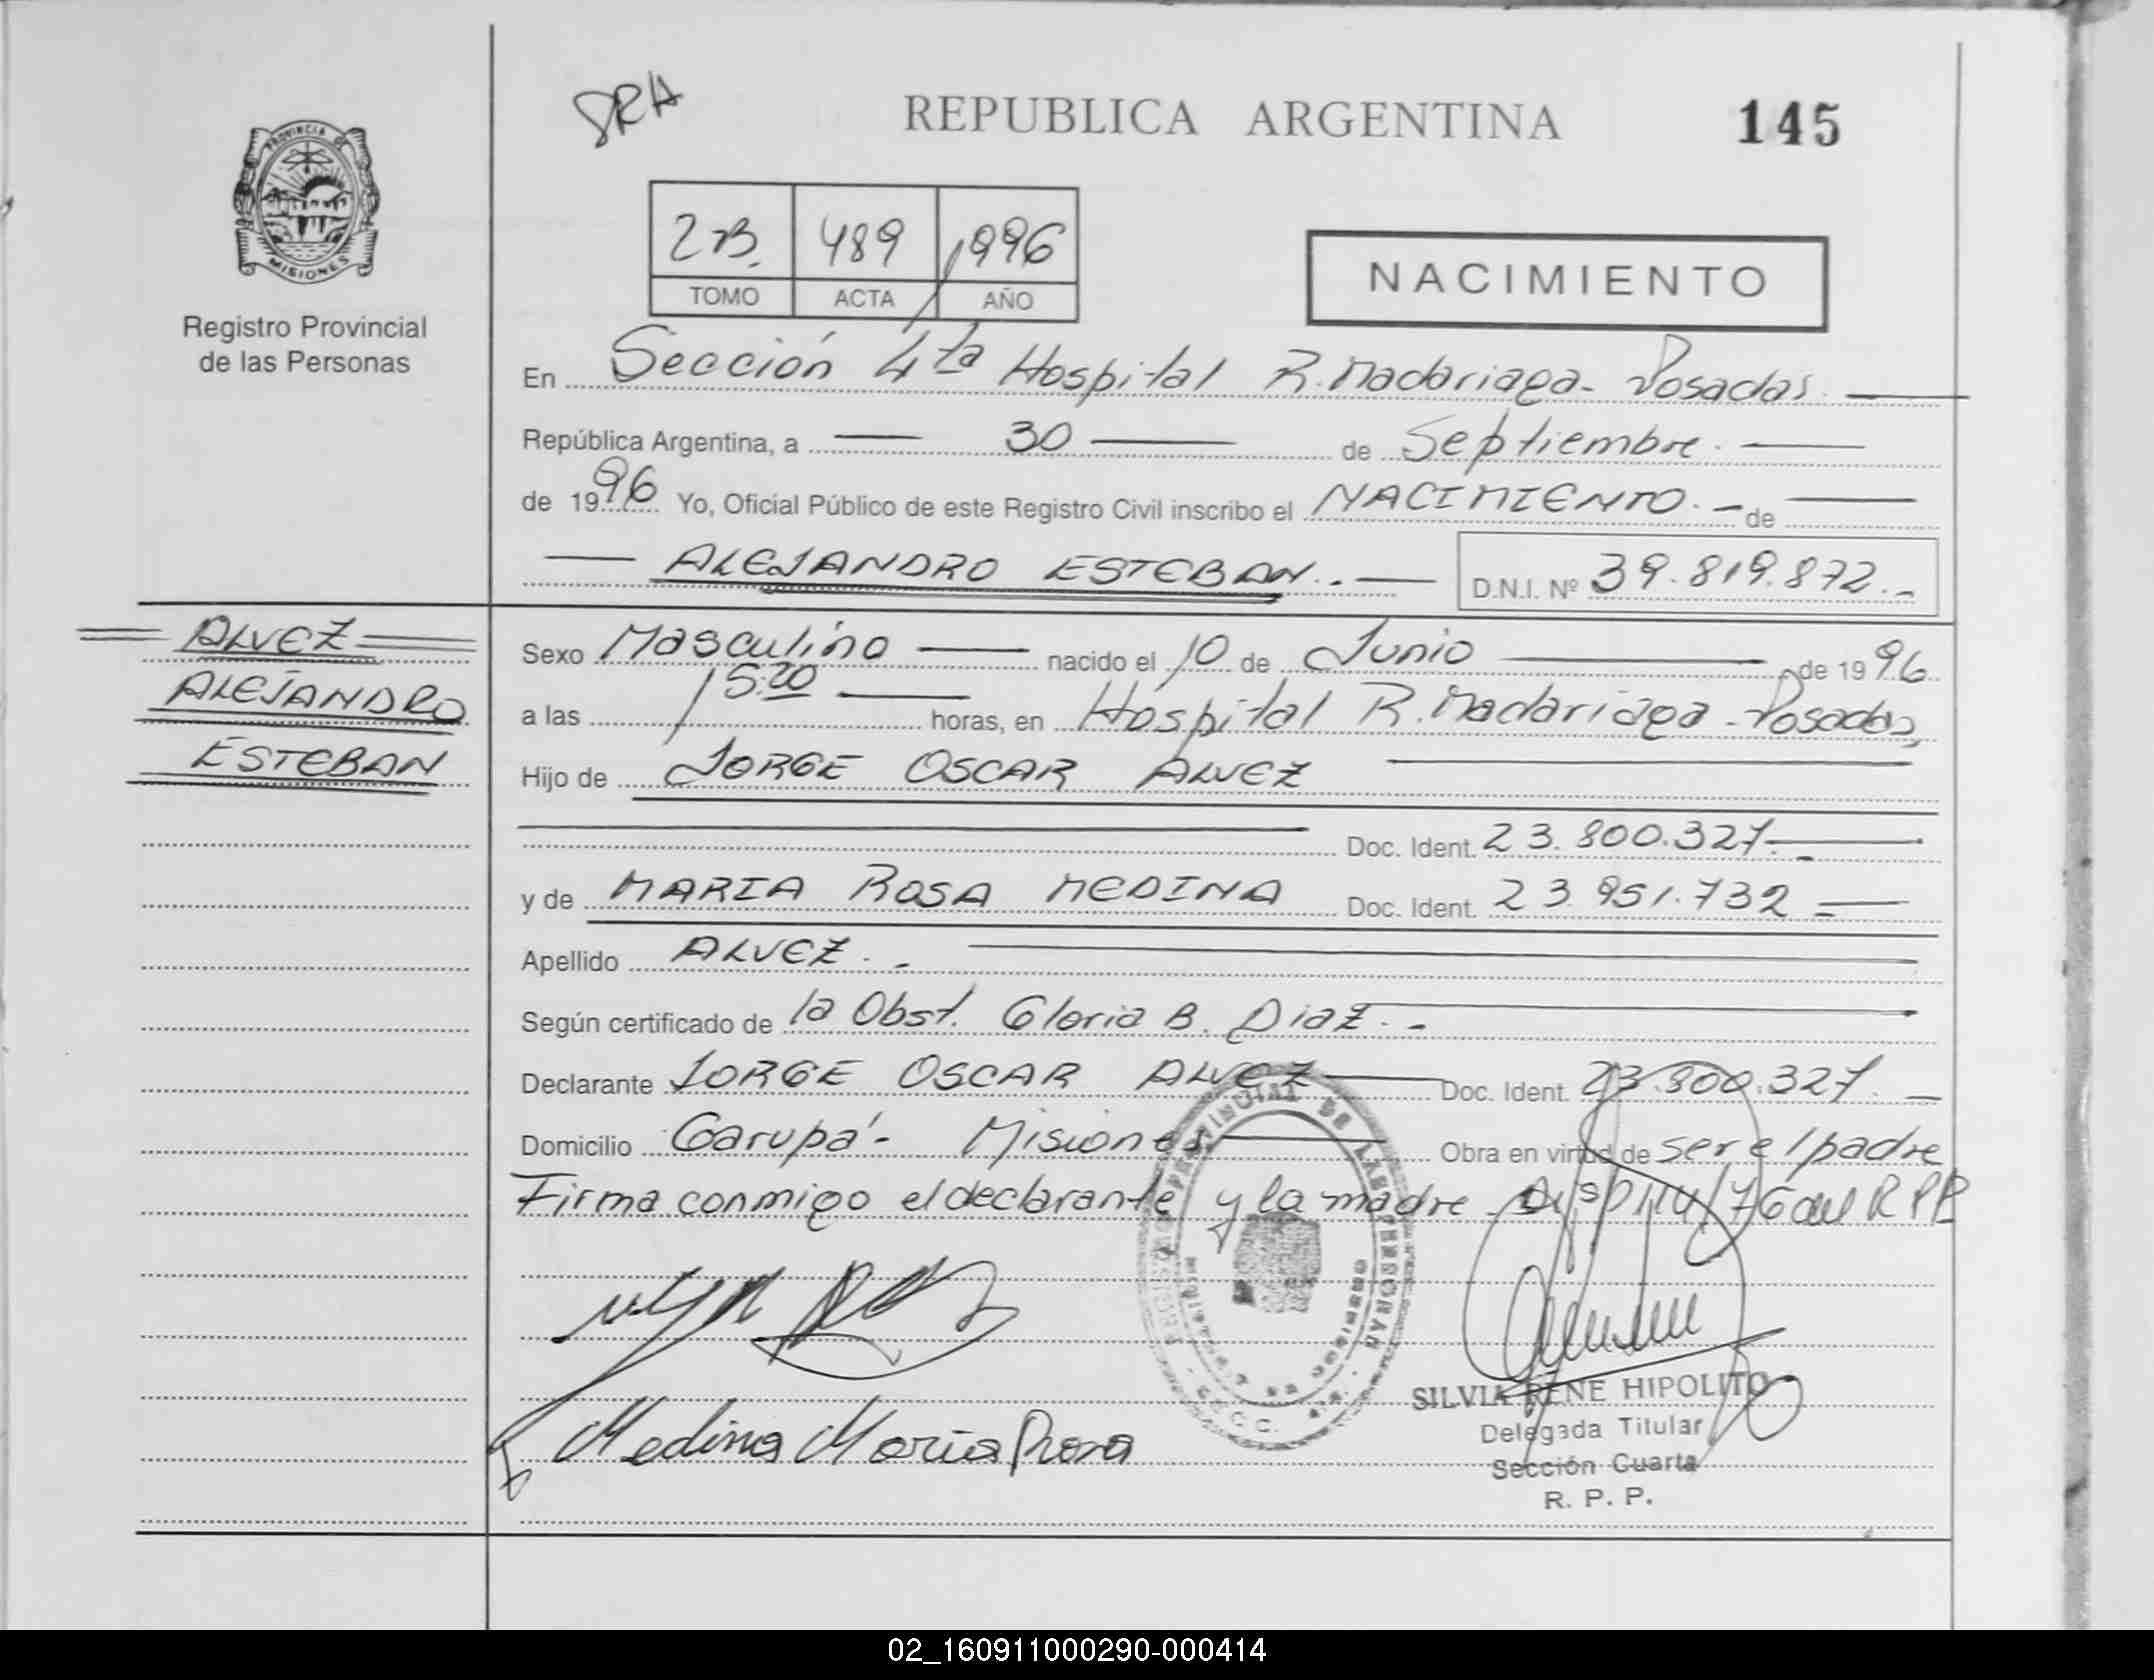 SRA
REPUBLICA ARGENTINA
145
PROVINCIA DE
MISIONES
Registro Provincial
de las Personas
2B. 489 1996
TOMO ACTA AÑO
NACIMIENTO
En Sección 4ta Hospital R. Madariaga - Posadas.
República Argentina, a 30 de Septiembre.
de 1996 Yo, Oficial Público de este Registro Civil inscribo el NACIMIENTO. - de
ALEJANDRO ESTEBAN. - D.N.I. Nº 39.819.872.-
ALVEZ
ALEJANDRO
ESTEBAN
Sexo Masculino nacido el 10 de Junio de 1996
a las 15:20 horas, en Hospital R. Madariaga - Posadas,
Hijo de JORGE OSCAR ALVEZ
Doc. Ident. 23.800.327.-
y de MARIA ROSA MEDINA Doc. Ident. 23.951.732 -
Apellido ALVEZ. -
Según certificado de la Obst. Gloria B. Diaz. -
Declarante JORGE OSCAR ALVEZ Doc. Ident. 23.800.327. -
Domicilio Garupá - Misiones Obra en virtud de ser el padre
Firma conmigo el declarante y la madre Disp 114/76 del RPP
PROVINCIAL DE LAS PERSONAS
Medina Maria Rosa
SILVIA RENE HIPOLITO
Delegada Titular
Sección Cuarta
R. P. P.
02_160911000290-000414